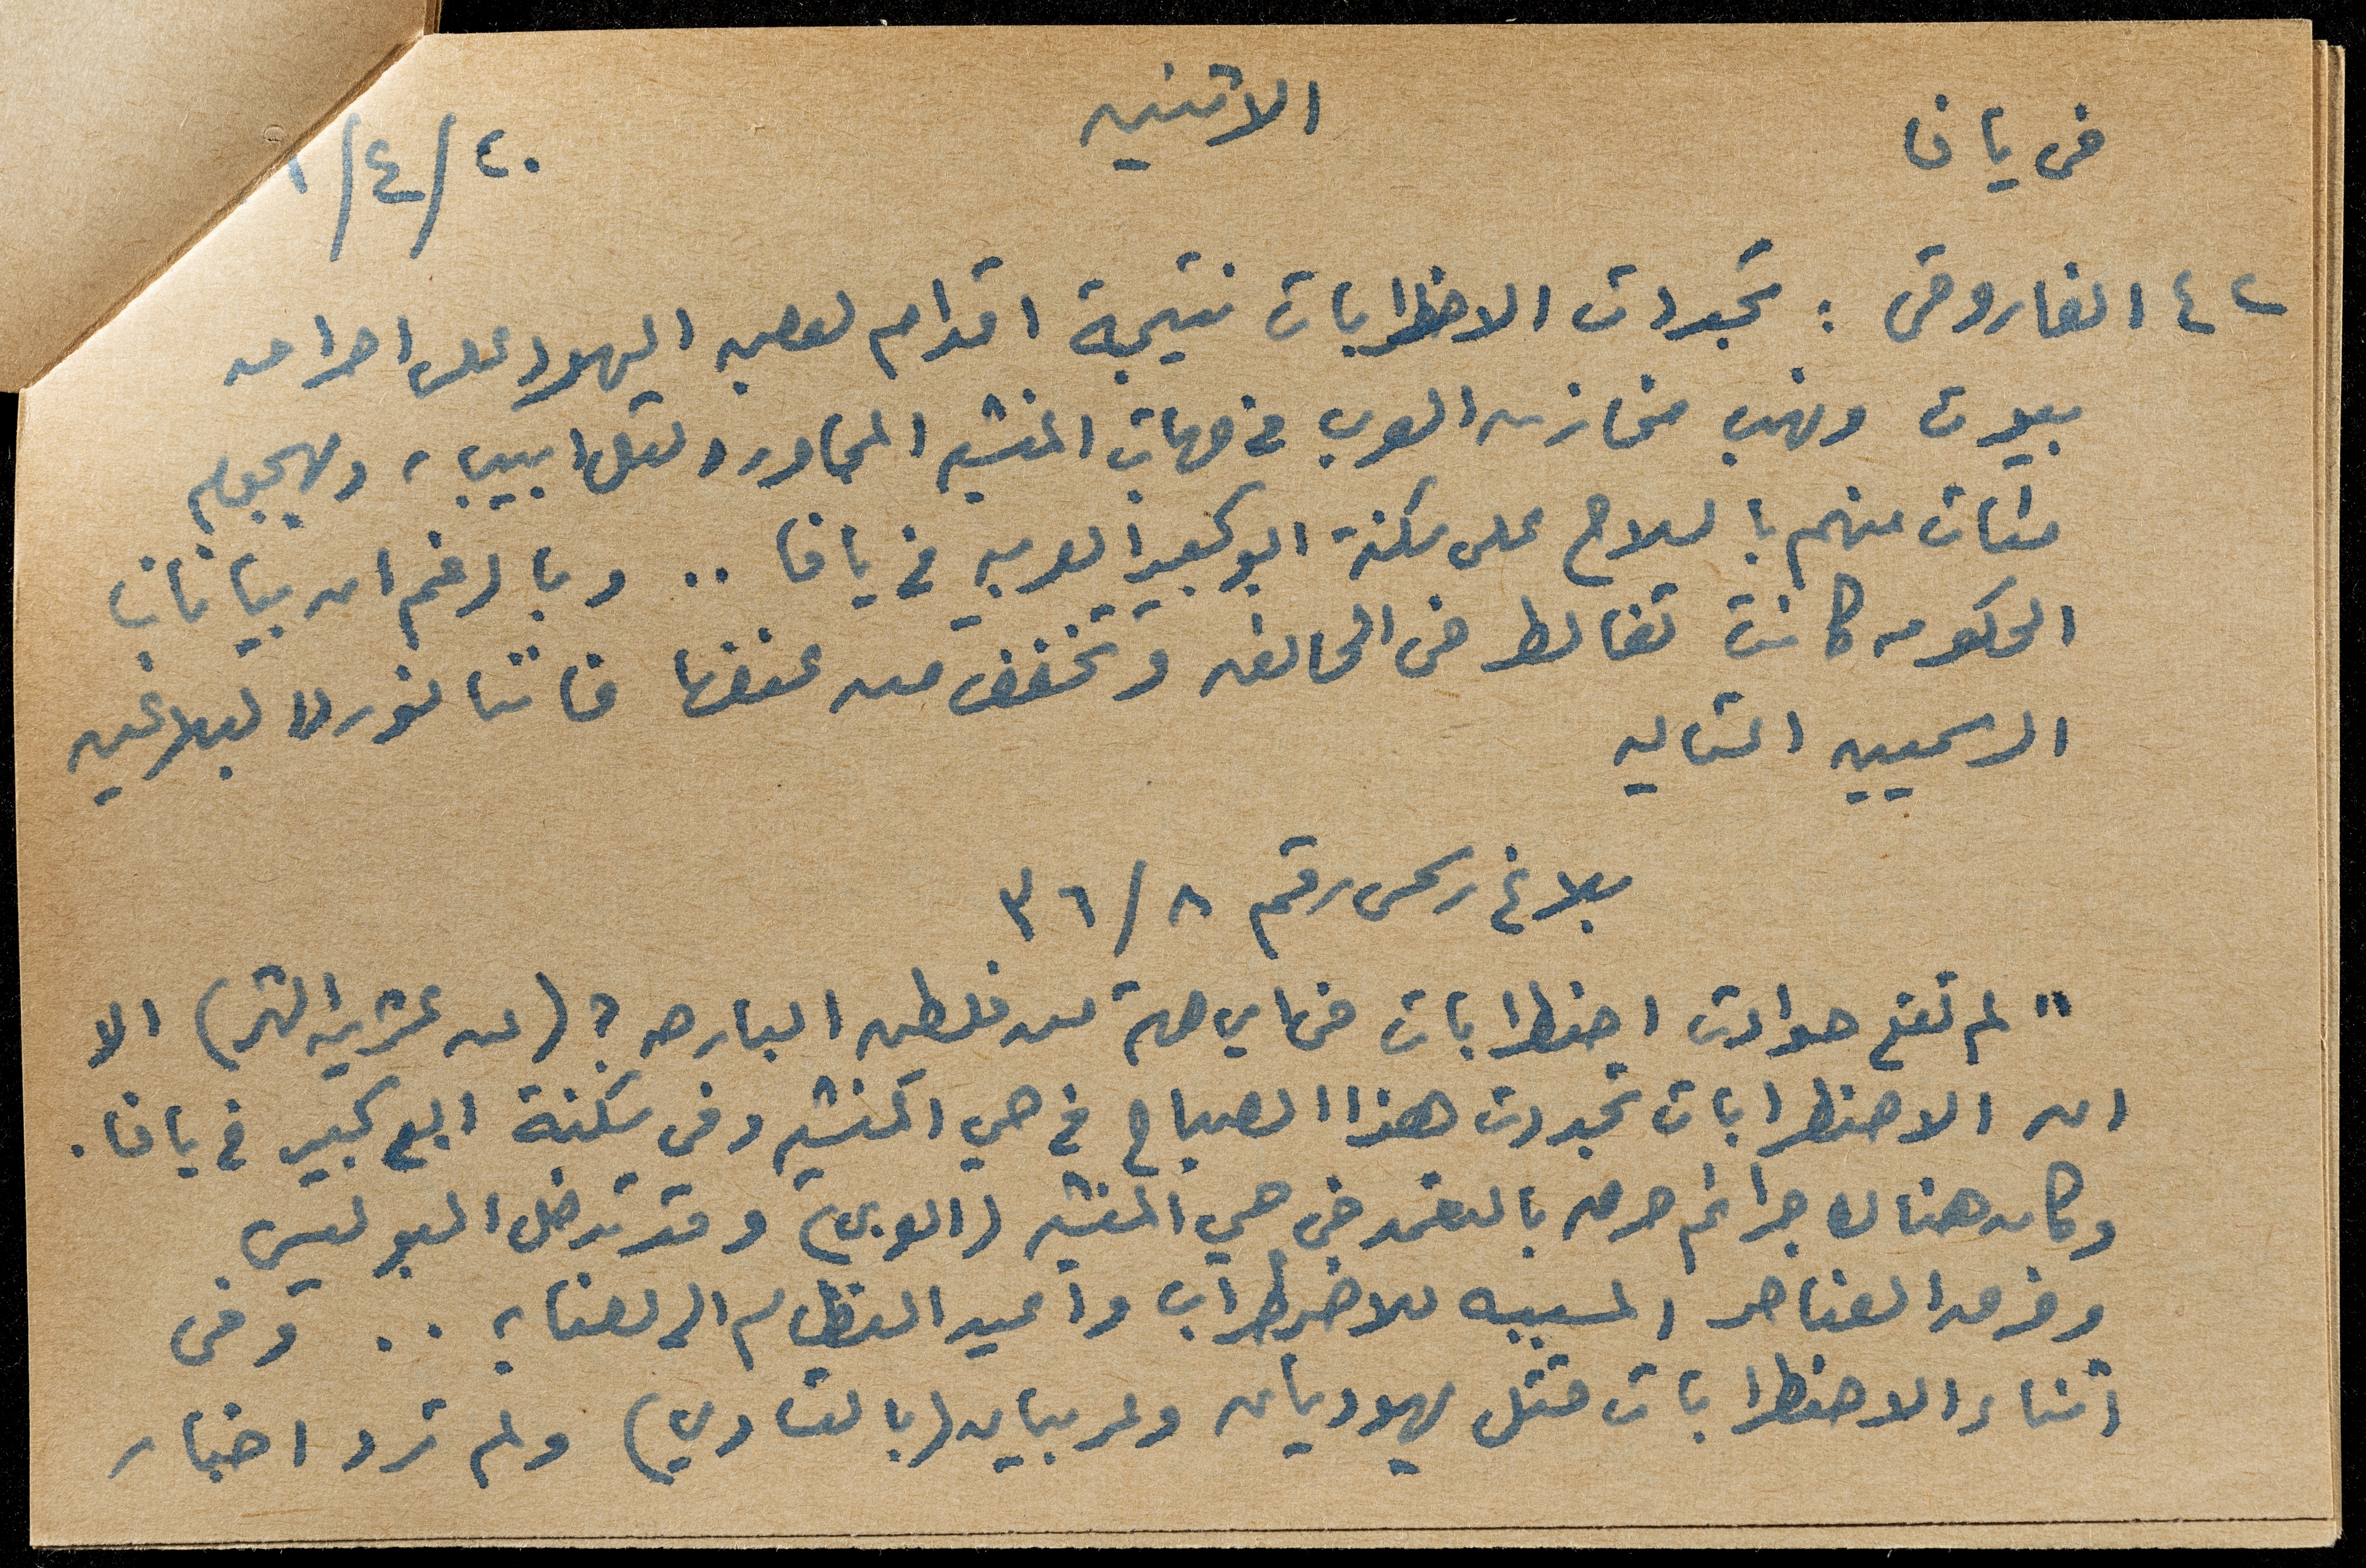 في يافا
الاثنين
٢٠/٤/
٤٢ الفاروقي : تجددت الاضطرابات نتيجة اقدام لصوص اليهود على احراق
بيوت ونهب مخازن العرب في جهات المنشيه المجاوره لتل ابيب، ولهجوم
مئات منهم بالسلاح على سكنة ابو كبير العربيه في يافا .. وبالرغم ان بيانات
الحكومه كانت تغالط في الحالة وتخفف من عنفها فاننا نورد البلاغين
الرسميين التاليه
بلاغ رسمي رقم ٣٦/٨
" لم تقع حوادث اضطرابات في اي جهة من فلسطين البارحه ؟ (من عشرين الشهر) الا
ان الاضطرابات تجددت هذا الصباح في حي المنشيه وفي سكنة ابو كبير في يافا.
وكان هناك جرائم حرق بالتعمد في حي المنشيه (العربي) وقد تدخل البوليس
وفرق العناصر المسببه للاضطراب واعيد النظام الى نصابه .. وفي
اثناء الاضطرابات قتل يهوديان وعربيان (بالتساوي) ولم ترد اخبار